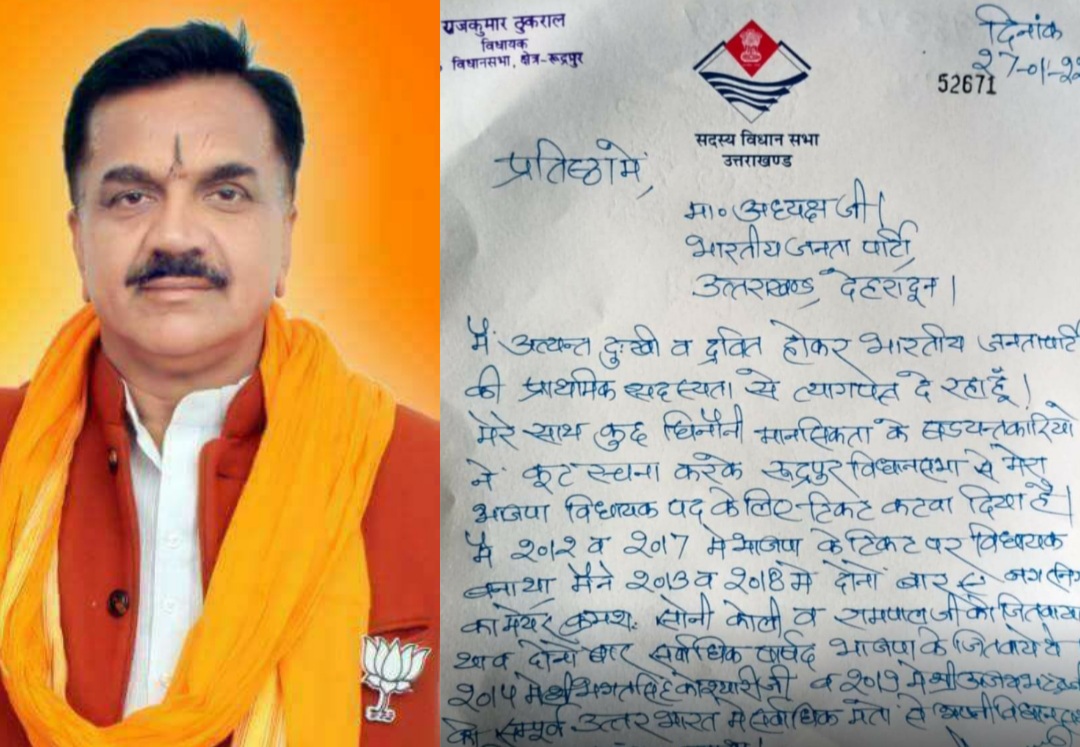 राजकुमार ठुकराल
विधायक
विधानसभा, क्षेत्र-रूद्रपुर
दिनांक
27-01-22
52671
सदस्य विधान सभा
उत्तराखण्ड
प्रतिष्ठा में,
मा० अध्यक्ष जी।
भारतीय जनता पार्टी,
उत्तराखण्ड, देहरादून।
मैं अत्यन्त दुःखी व द्रवित होकर भारतीय जनता पार्टी
की प्राथमिक सदस्यता से त्यागपत्र दे रहा हूँ।
मेरे साथ कुछ घिनौनी मानसिकता के षडयन्तकारियो
ने कूट रचना करके रूद्रपुर विधानसभा से मेरा
भाजपा विधायक पद के लिए टिकट कटवा दिया है।
मै 2012 व 2017 मे भाजपा के टिकट पर विधायक
बना था मैने 2013 व 2018 मे दोनों बार नगर निगम
का मेयर क्रमशः सोनी कोली व रामपाल जी को जितवाया
था व दोनों बार सर्वाधिक पार्षद भाजपा के जितवाये थे
2014 मे श्री भगत सिंह कोश्यारी जी व 2019 मे श्री अजय भट्ट जी
को सम्पूर्ण उत्तर भारत मे सर्वाधिक मतो से अपनी विधानसभा